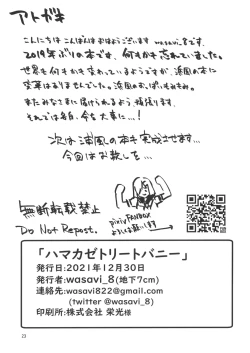 アトガキ
こんにちは こんばんは おはようございます wasavi_8です。
2019年ぶりの本です、何もかも忘れていました。
世界も何もかも変わっているようですが、浜風の本に
変革はありませんでした。浜風のおっぱいもみもみ。
またみなさまに届けられるよう頑張ります。
それでは各自、今を大事に…!
次は浦風の本も完成させます…
今回はお試しを…
無断転載禁止
Do Not Repost.
pixiv FANBOX
「ハマカゼトリートバニー」
発行日:2021年12月30日
発行者:wasavi_8(地下7cm)
連絡先:wasavi822@gmail.com
(twitter @wasavi_8)
印刷所:株式会社 栄光様
23